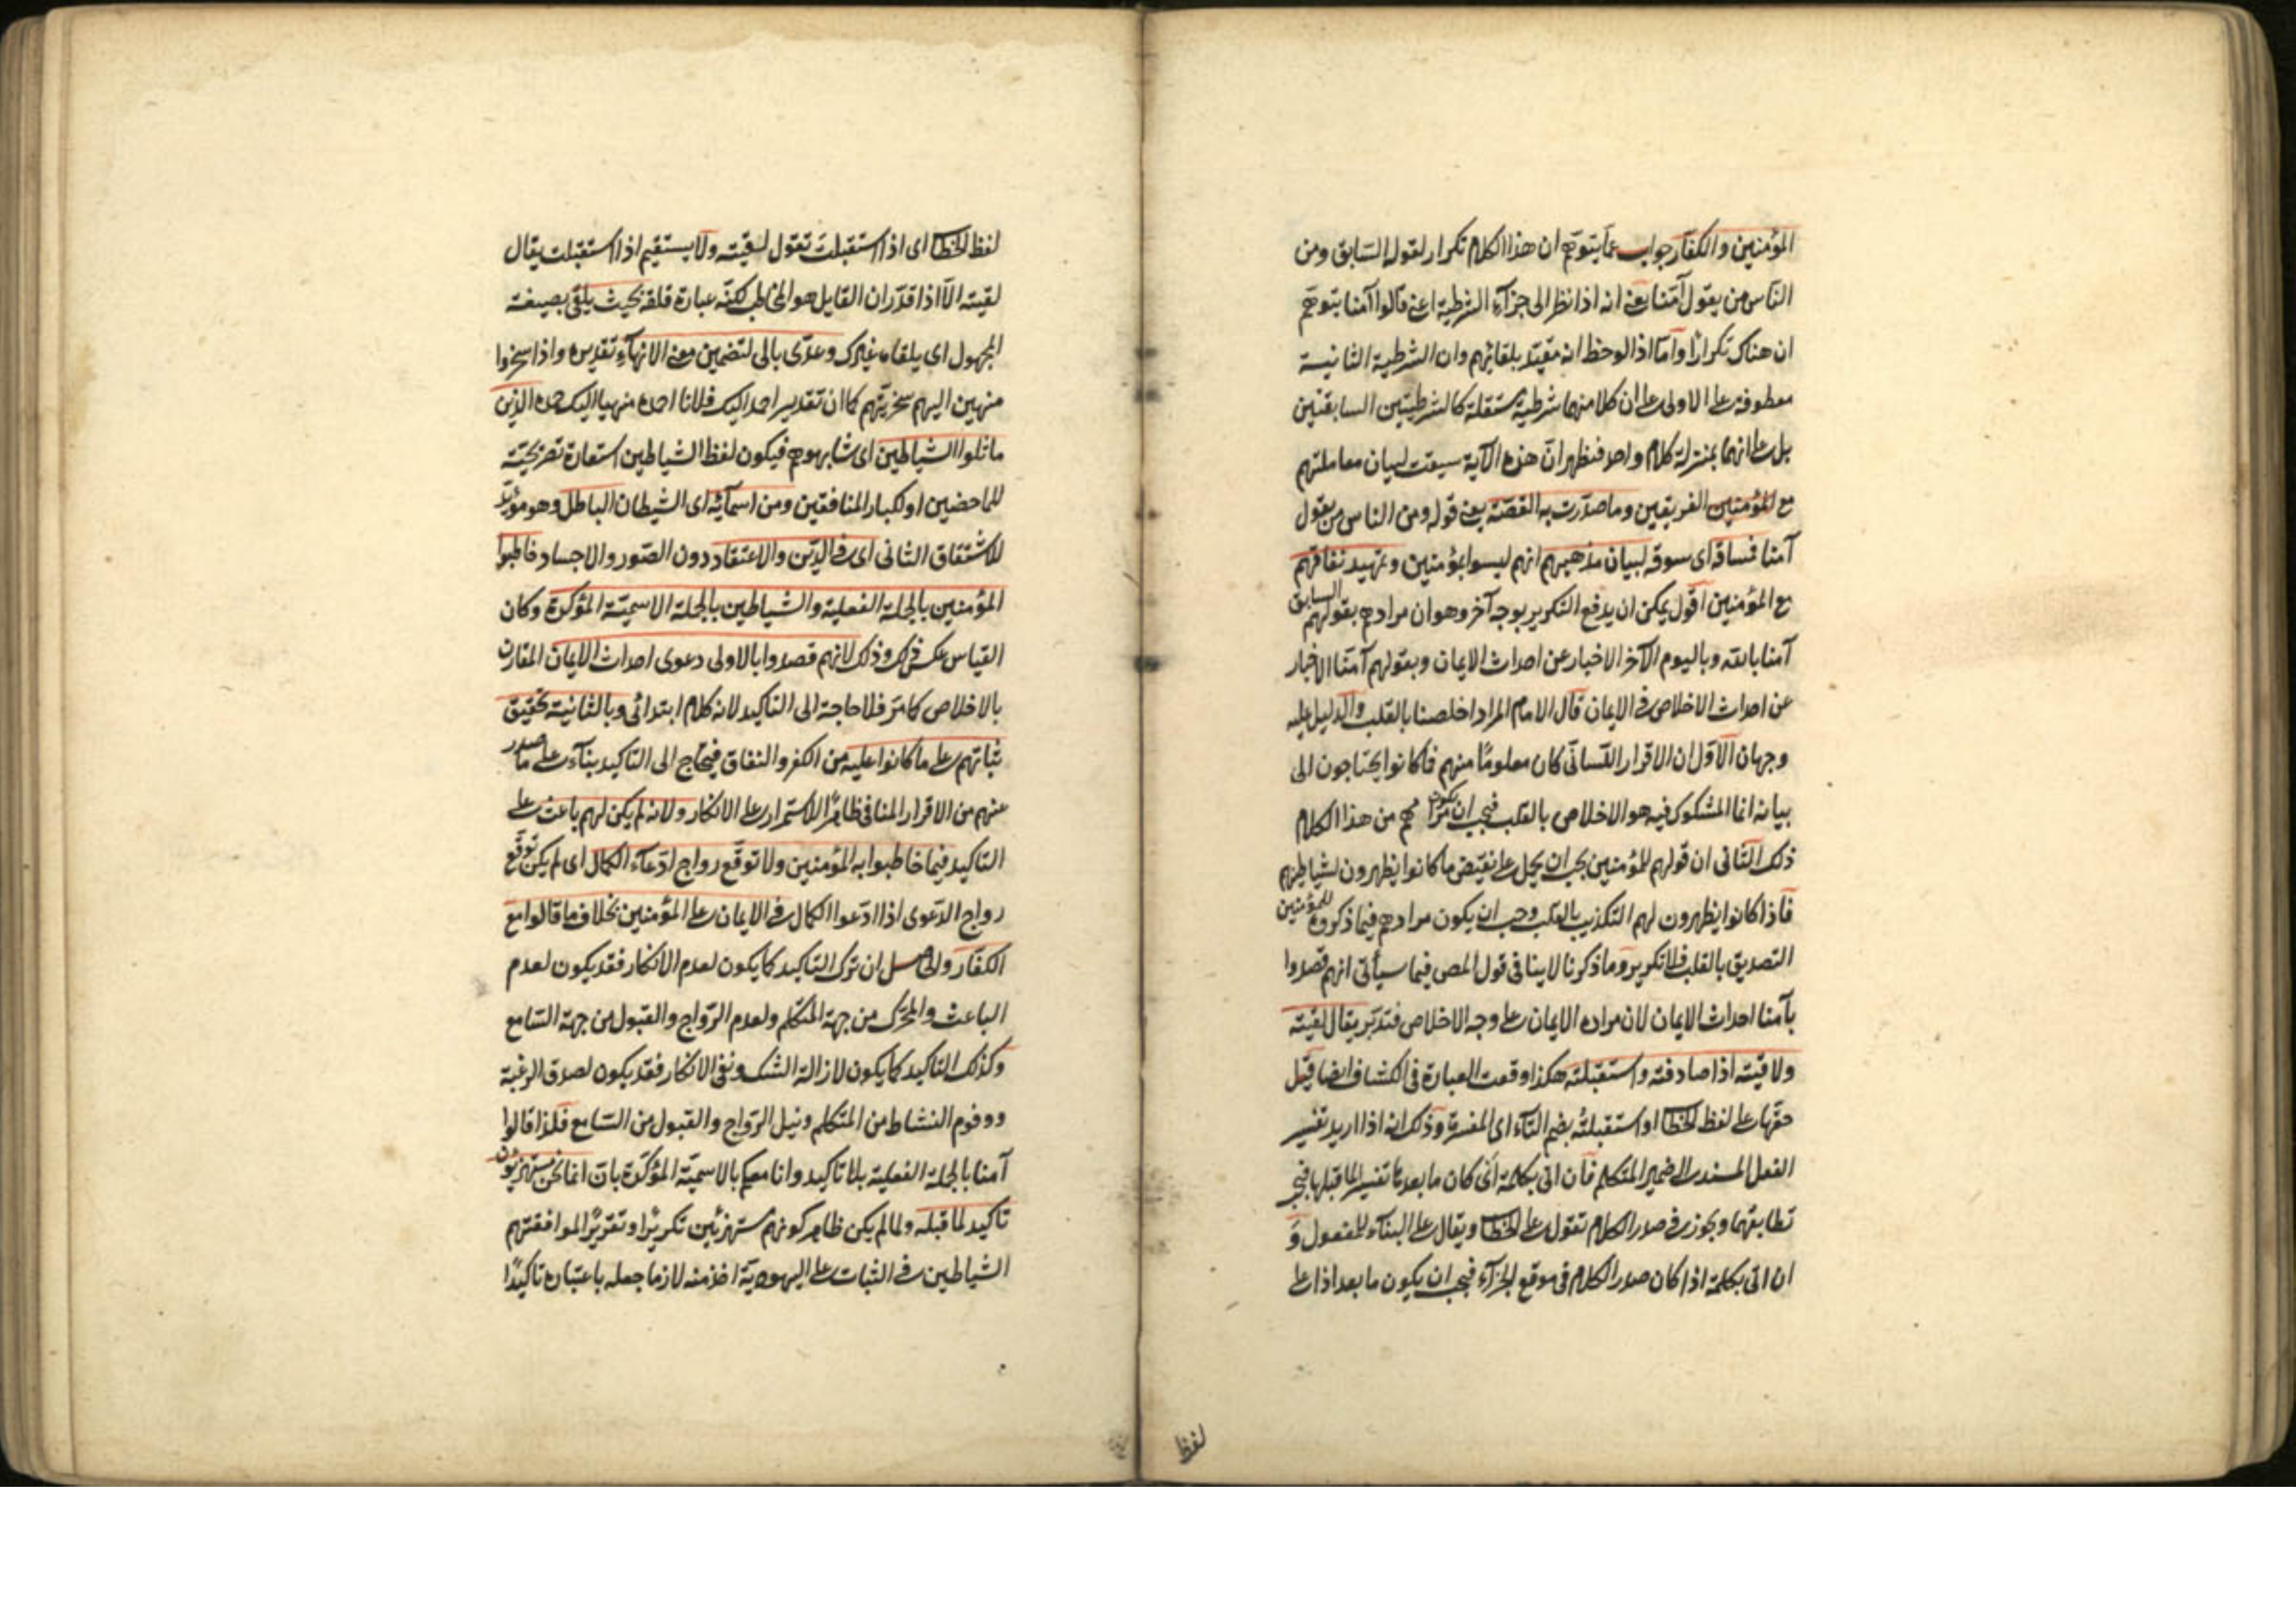 المؤمنين والكفار جواب عما يتوهم ان هذا الكلام تكرار لقوله السابق ومن
الناس من يقول آمنا يعنى انه اذا نظر الى جزآء الشرطية اعنى قالوا آمنا يتوهم
ان هناك تكرارا وأما اذا لوحظ انه مقيد بلقائهم وان الشرطية الثانية
معطوفة على الاولى على ان كلا منهما شرطية مستقلة كالشرطيتين السابقتين
بل على انهما بمنزلة كلام واحد فظهر انّ هذه الآية سيقت لبيان معاملتهم
مع المؤمنين الفريقين وما صدّرت به القصّة يعنى قوله ومن الناس من يقول
آمنا فساقه اى سوقه لبيان مذهبهم انهم ليسوا بمؤمنين وتمهيد نفاقهم
مع المؤمنين اقول يمكن ان يدفع التكرير بوجه آخر وهو ان مرادهم بقولهم السابق
آمنا بالله وباليوم الآخر الاخبار عن احداث الايمان وبقولهم آمنّا الاخبار
عن احداث الاخلاص فى الايمان قال الامام المراد اخلصنا بالقلب والدليل عليه
وجهان الاول ان الاقرار اللسانّى كان معلومًا منهم فما كانوا يحتاجون الى
بيانه انما المشكوك فيه هو الاخلاص بالقلب فيجب ان يكون مرادهم من هذا الكلام
ذلك الثانى ان قولهم للمؤمنين يجب ان يحمل على نقيض ما كانوا يظهرون لشياطينهم
فاذا كانوا يظهرون لهم التكذيب بالقلب وجب ان يكون مرادهم فيما ذكروه للمؤمنين
التصديق بالقلب فلا تكرير وما ذكرنا لا ينافى قول المص فيما سيأتى انهم قصدوا
بآمنا احداث الايمان لان مراده الايمان على وجه الاخلاص فتدبّر يقال لقيته
ولاقيته اذا صادفته واستقبلته هكذا وقعت العبارة فى الكشاف ايضا قيل
حقّها على لفظ الخطاب او استقبلتُه بضم التآء اى المفسرة وذلك انه اذا اريد تفسير
الفعل المسند الى ضمير المتكلم فان اتى بكلمة اى كان ما بعدها تفسيرا لما قبلها فيجب
تطابقهما ويجوز فى صدر الكلام تقول على الخطاب ويقال على البنآء للمفعول وَ
ان اتى بكلمة اذا كان صدر الكلام فى موقع الجزآء فيجب ان يكون ما بعد اذا على
لفظ
لفظ الخطاب اى اذا استقبلتَ تقول لقيته ولا يستقيم اذا استقبلت يقال
لقيته الاّ اذا قدّر ان القايل هو المخاطب لكنّه عبارة قلقة بحيث يلقى بصيغة
المجهول اى يلقاه غيرك وعدّى بالى لتضمين معنى الانهآء تقديره واذا سخروا
منهين اليهم سخريتهم كما ان تقدير احمد اليك فلانا احمده منهيا اليك حمده الذين
ماثلوا الشياطين اى شابهوهم فيكون لفظ الشياطين استعارة تصريحيّة
للماحضين او لكبار المنافقين ومن اسمآئه اى الشيطان الباطل وهو مؤيّد
للاشتقاق الثانى اى فى الدّين والاعتقاد دون الصّور والاجساد خاطبوا
المؤمنين بالجملة الفعلية والشياطين بالجملة الاسميّة المؤكدة وكان
القياس عكس ذلك وذلك لانهم قصدوا بالاولى دعوى احداث الايمان المقارن
بالاخلاص كما مرّ فلا حاجة الى التاكيد لانه كلام ابتدائى وبالثانية تحقيق
ثباتهم على ما كانوا عليه من الكفر والنفاق فيحتاج الى التاكيد بنآء على ما صدر
عنهم من الاقرار المنافى ظاهرًا للاستمرار على الانكار ولانه لم يكن لهم باعث على
التاكيد فيما خاطبوا به المؤمنين ولا توقّع رواج ادّعآء الكمال اى لم يكن توقّع
رواج الدّعوى اذا ادّعوا الكمال فى الايمان على المؤمنين بخلاف ما قالوا مع
الكفّار والحاصل ان ترك التاكيد كما يكون لعدم الانكار فقد يكون لعدم
الباعث والمحرّك من جهة المتكلم ولعدم الرّواج والقبول من جهة السّامع
وكذلك التاكيد كما يكون لازالة الشك ونفى الانكار فقد يكون لصدق الرغبة
ووفور النشاط من المتكلم ونيل الرّواج والقبول من السّامع فلذا قالوا
آمنا بالجملة الفعلية بلا تاكيد وانا معكم بالاسميّة المؤكّدة بانّ انما نحن مستهزؤن
تاكيد لما قبله ولما لم يكن ظاهر كونهم مستهزئين تكريرًا وتقريرًا لموافقتهم
الشياطين فى الثبات على اليهوديّة اخذ منه لازما جعله باعتباره تاكيدًا